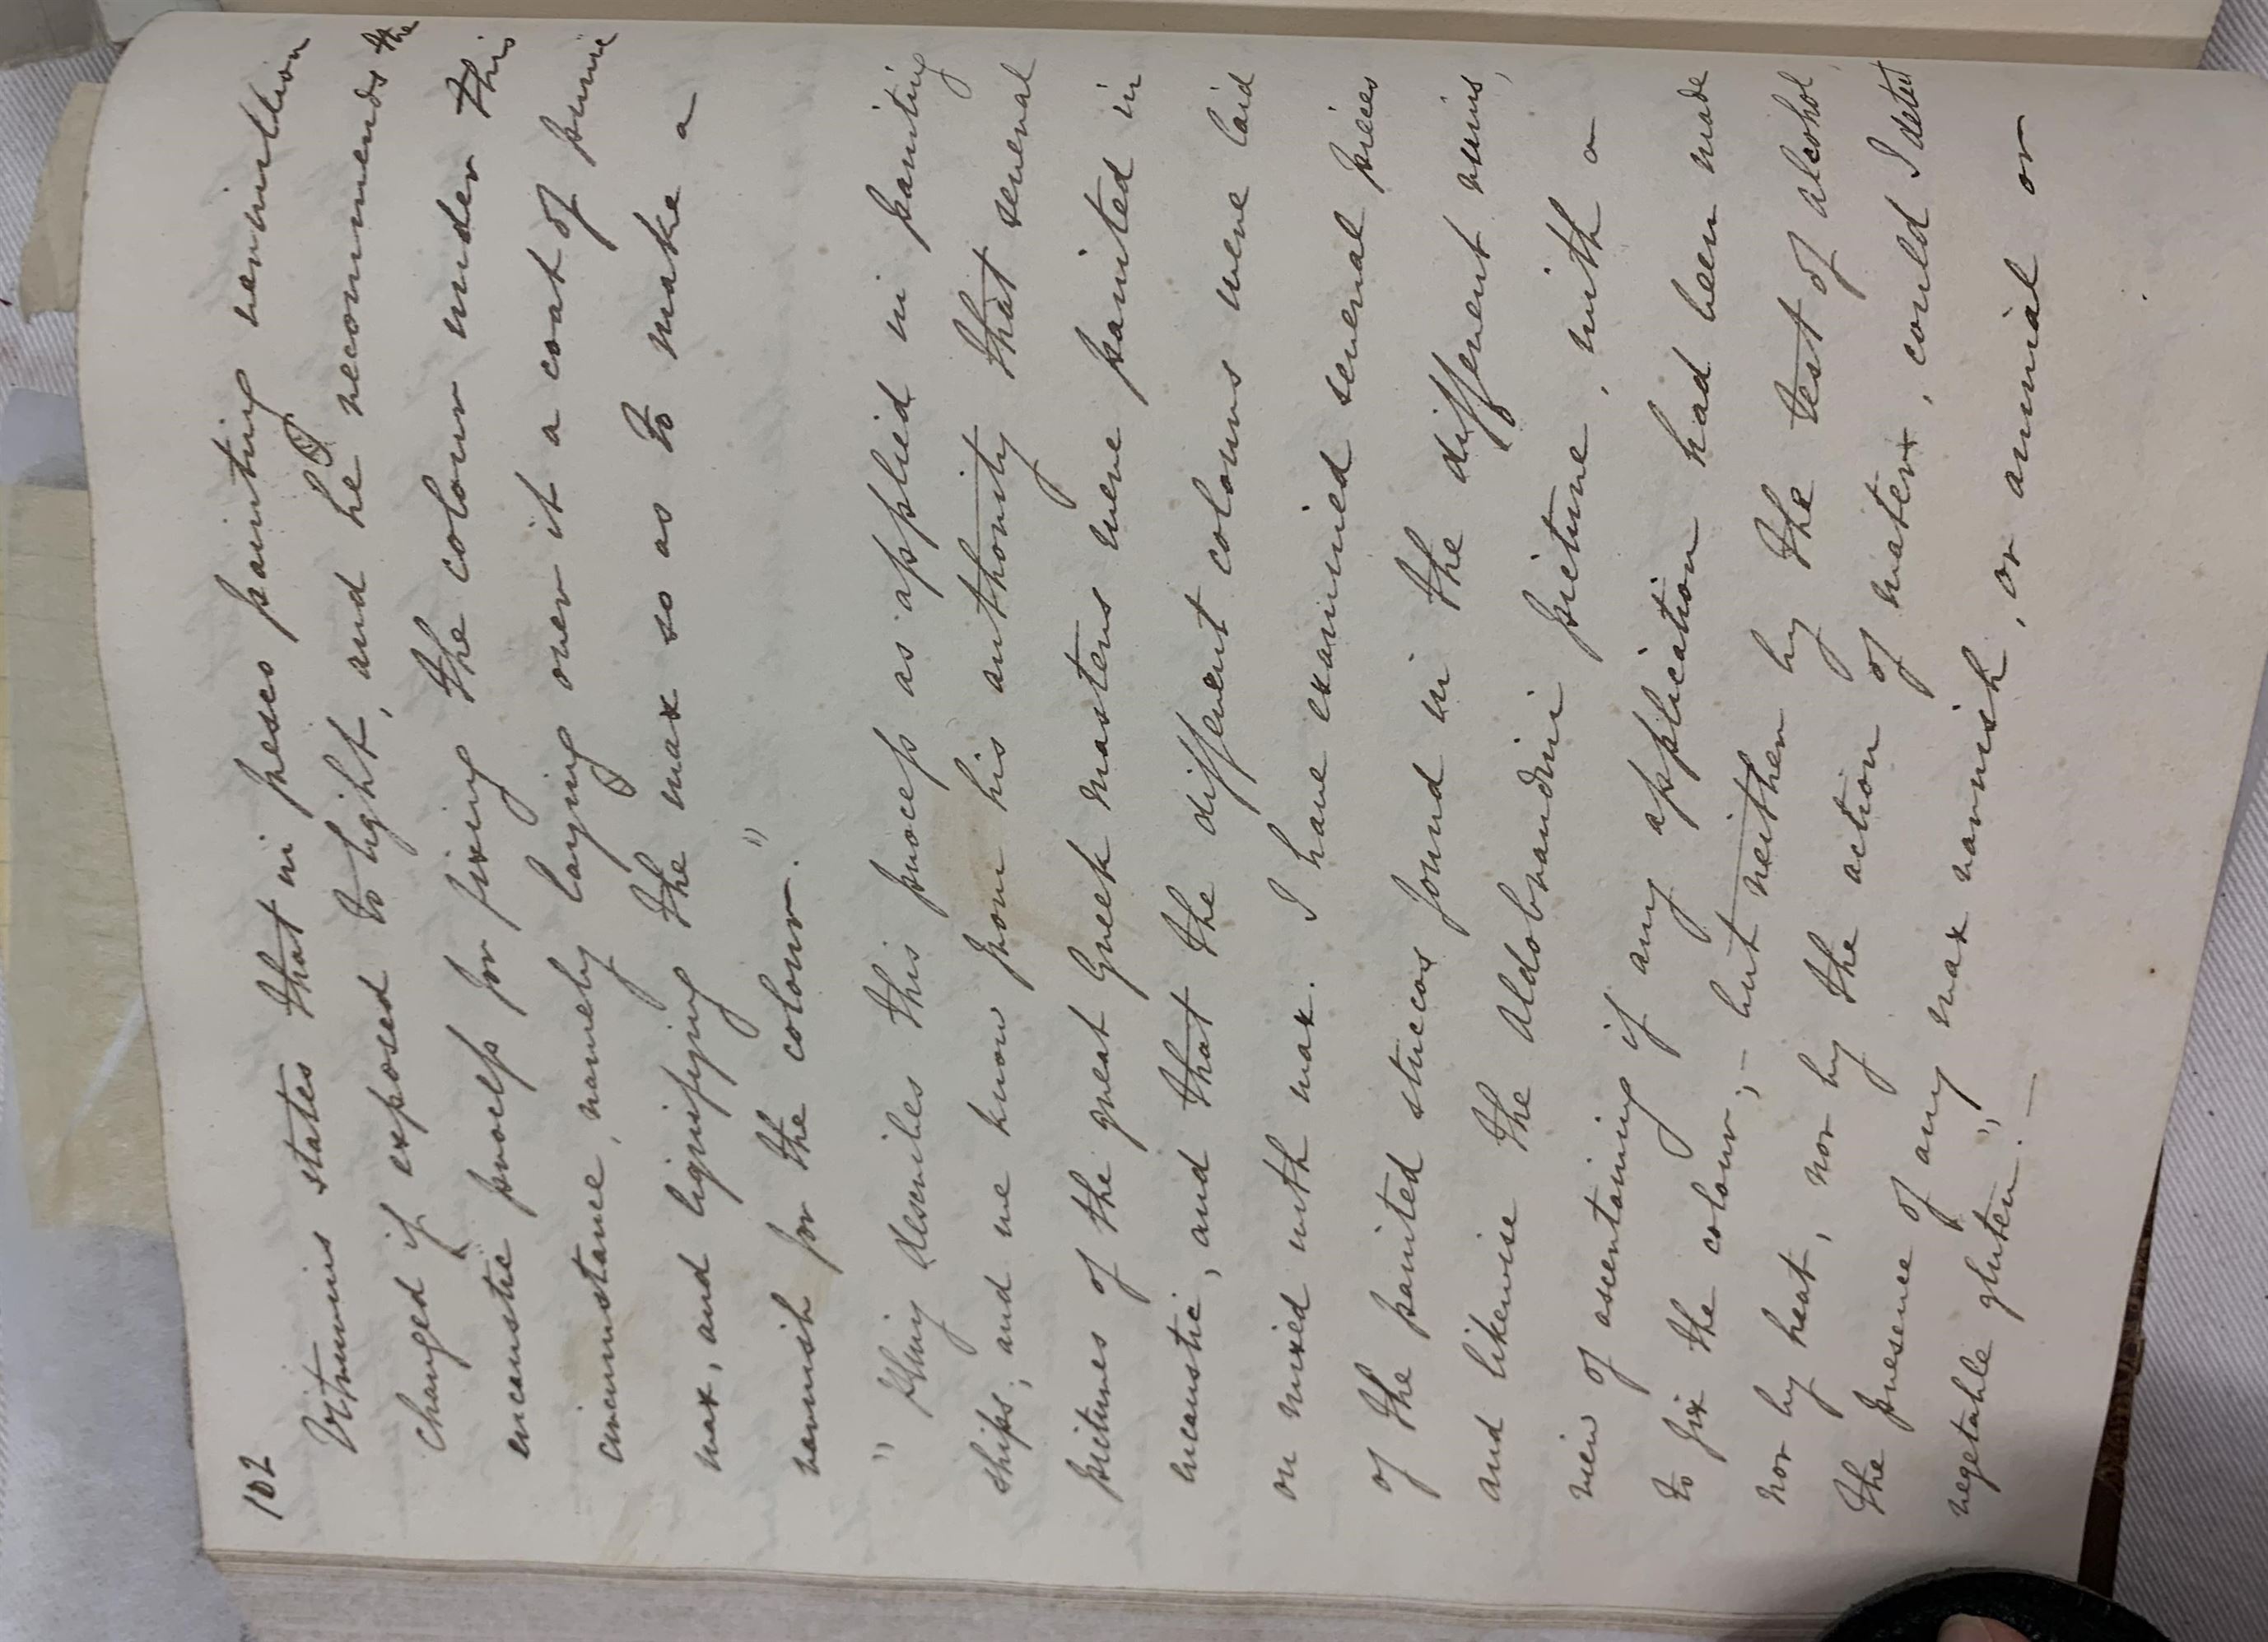 102
Vitruvius states that in fresco painting vermilion
changed if exposed to light, and he recommends the
encaustic process for fixing the colour under this
circumstance, namely laying over it a coat of punic
wax, and liquifying the wax so as to make a
varnish for the colour."
" Pliny describes this process as applied in painting
ships; and we know from his authority that several
pictures of the great Greek masters were painted in
encaustic, and that the different colours were laid
on mixed with wax. I have examined several pieces
of the painted stuccos found in the different ruins,
and likewise the Aldobrandini picture, with a
view of ascertaining if any application had been made
to fix the colour; - but neither by the test of alcohol,
nor by heat, nor by the action of water, could I detect
the presence of any wax varnish, or animal or
vegetable gluten." —